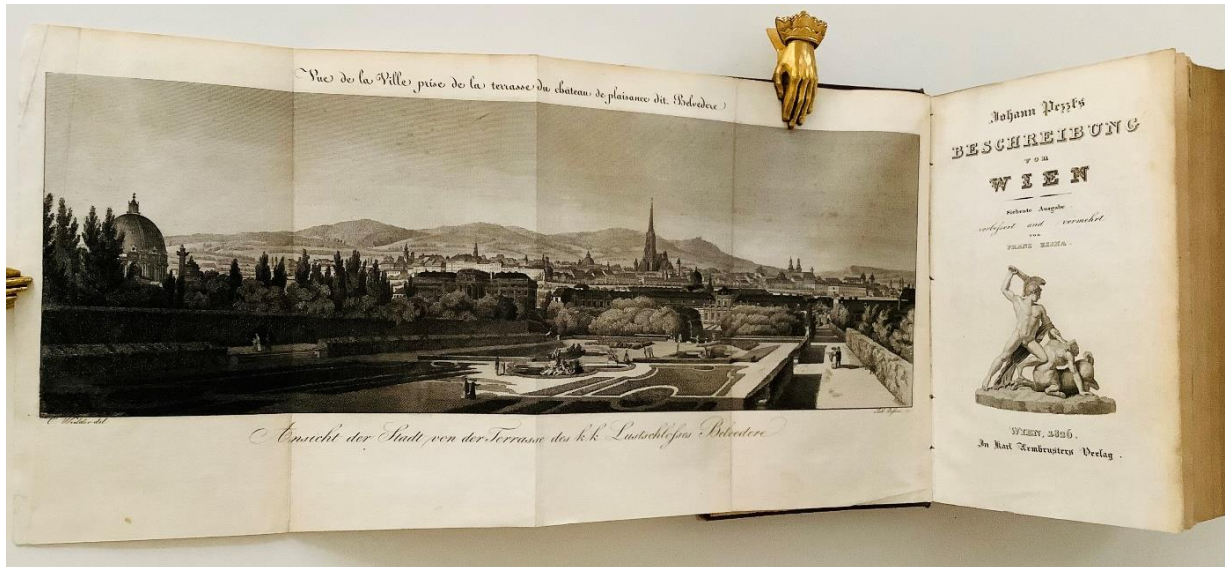 Vue de la Ville prise de la terrasse du château de plaisance dit. Belvedere
Ansicht der Stadt von der Terrasse des k.k. Lustschlosses Belvedere
Johann Pezzl's
BESCHREIBUNG
VON
WIEN
Siebente Ausgabe
verbessert und vermehrt
VON
FRANZ
WIEN, 1826.
In Karl Armbrusters Verlag.